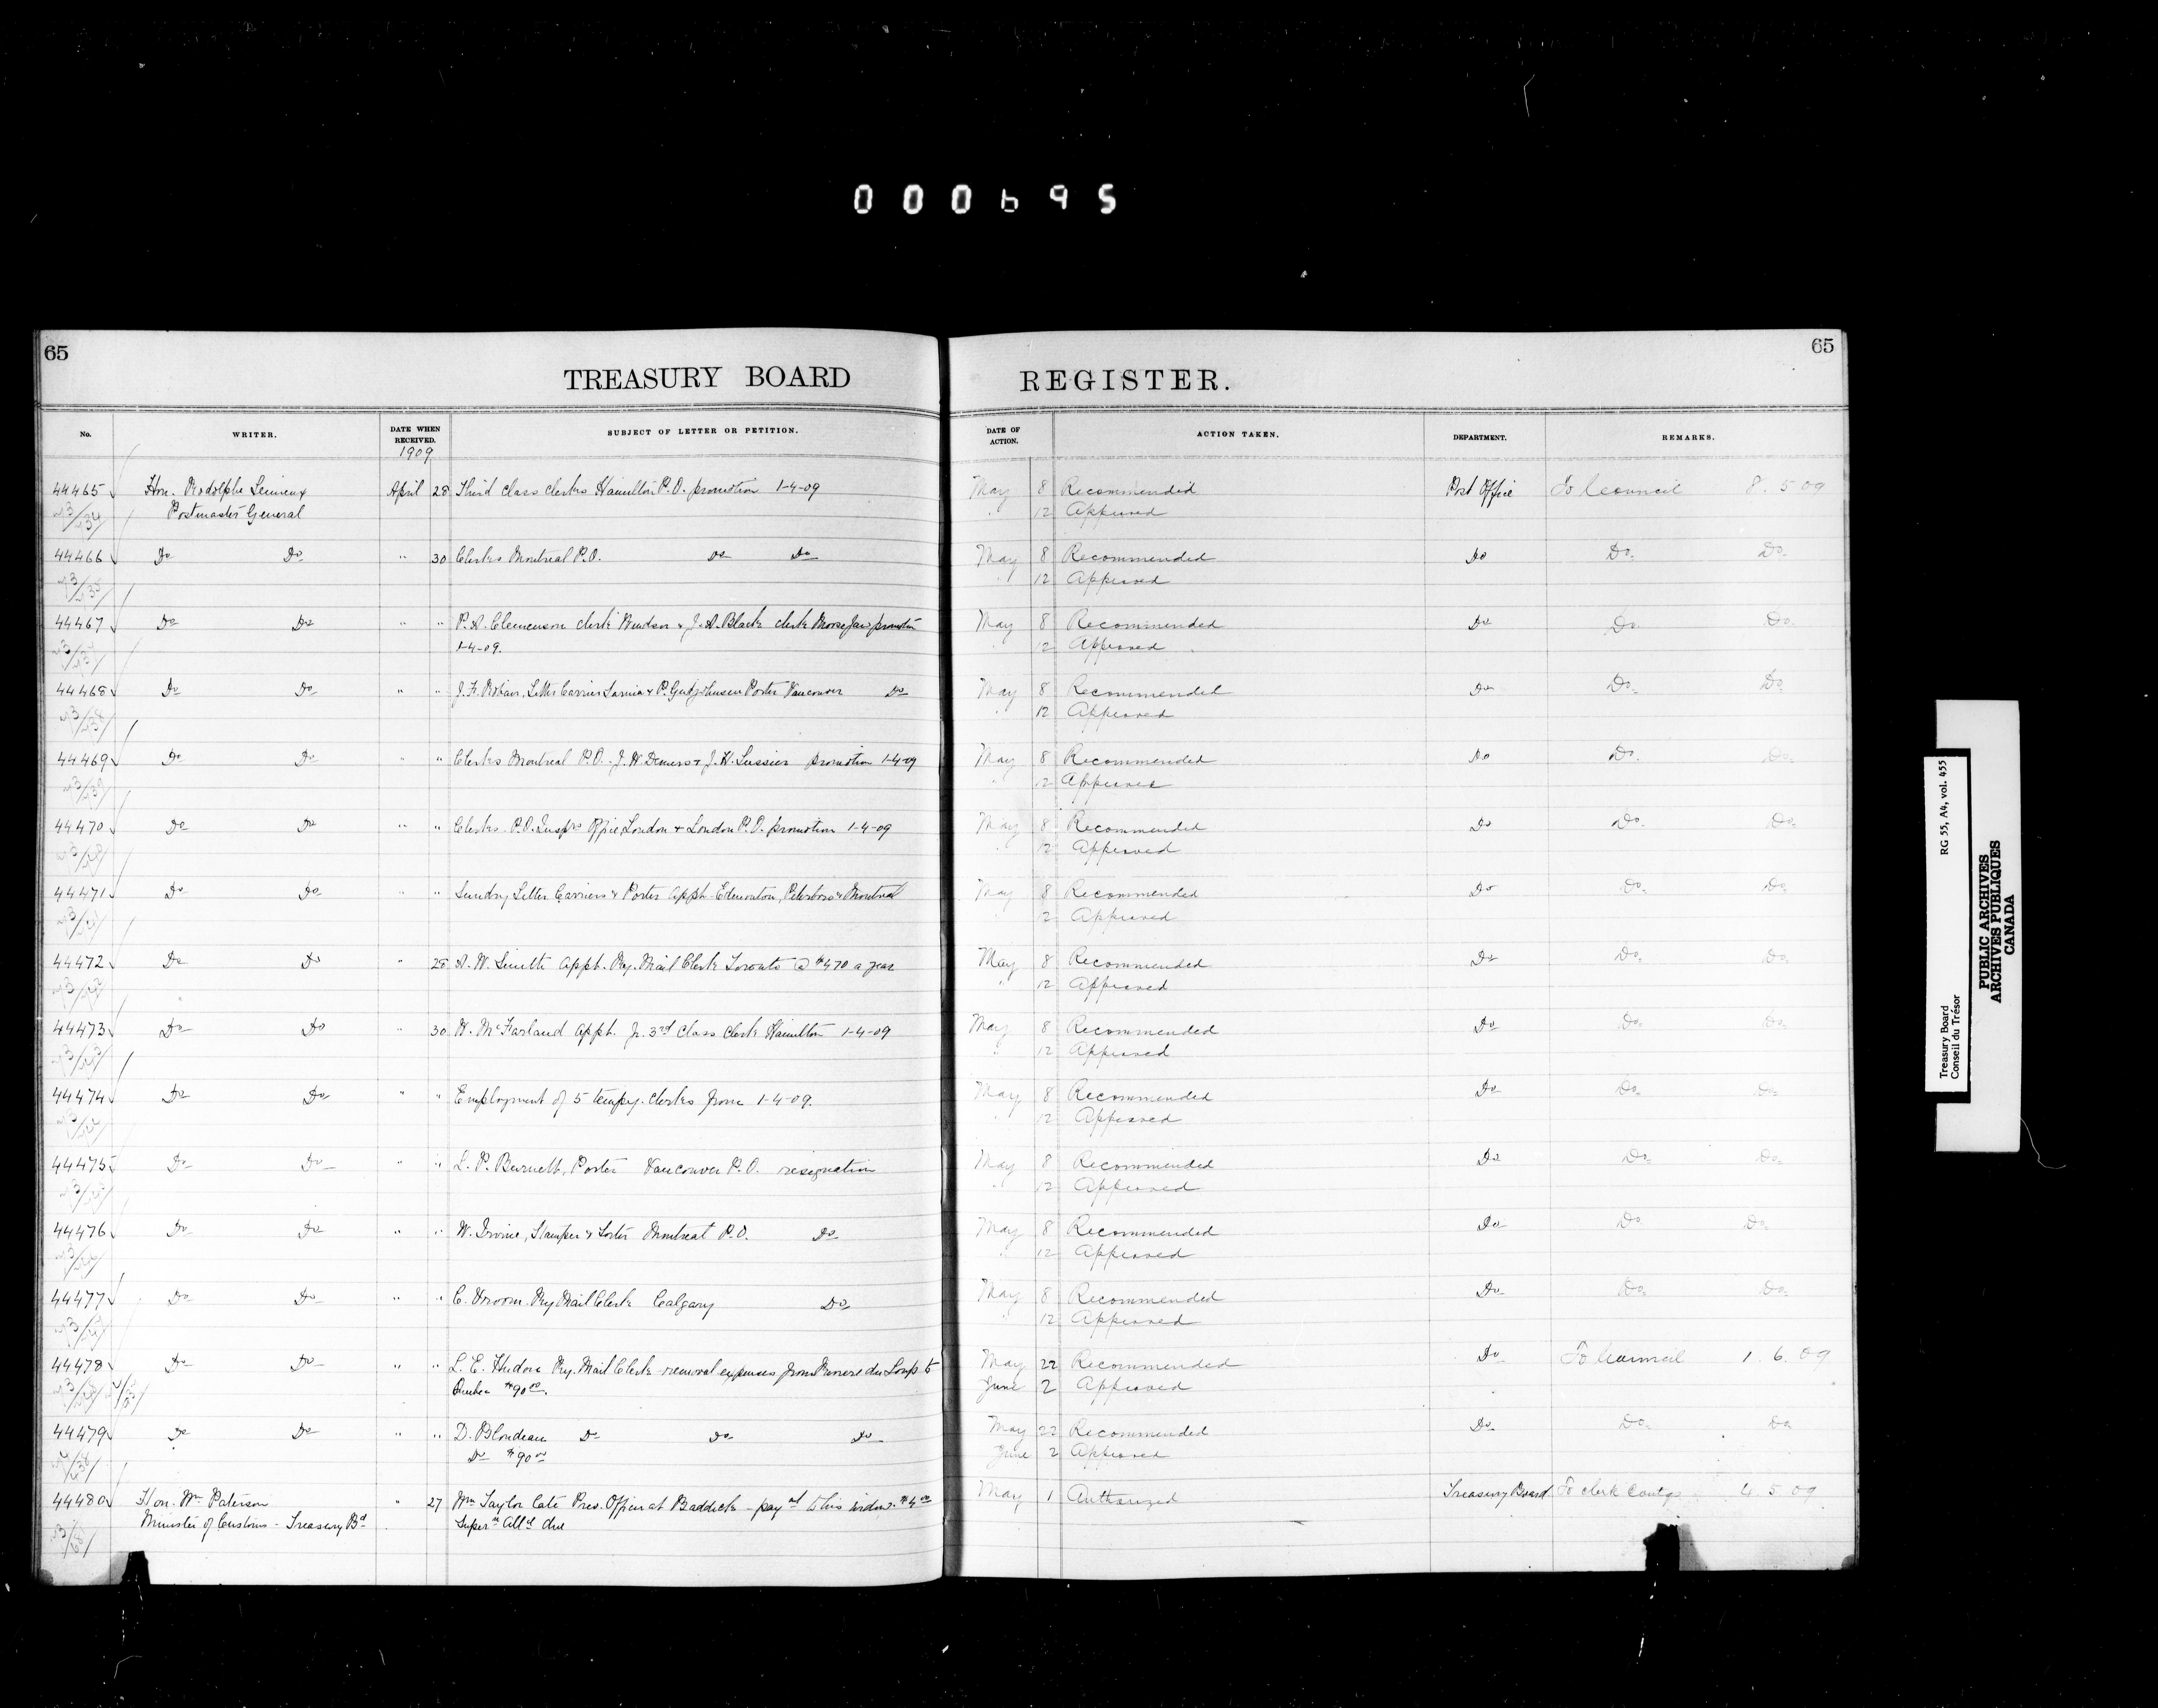 000695
65
TREASURY BOARD
REGISTER.
65
No.
WRITER.
DATE WHEN RECEIVED.
SUBJECT OF LETTER OR PETITION.
DATE OF ACTION.
ACTION TAKEN.
DEPARTMENT.
REMARKS.
1909
44465 Hon. Rodolphe Lemieux April 28 Third Class Clerks Hamilton P.O. promotion 1-4-09 May 8 Recommended Post Office To Council 8.5 09
Postmaster General 12 Approved
44466 Do Do " 30 Clerks Montreal P.O. Do Do May 8 Recommended Do Do. Do.
" 12 Approved
44467 Do Do " " P.A. Clemenson clerk Windsor & J.A. Black clerk Moose Jaw promotion May 8 Recommended Do Do. Do.
1-4-09. 12 Approved
44468 Do Do " " J.F. Letter Carrier Sarnia & P. Porter Vancouver Do May 8 Recommended Do Do. Do.
" 12 Approved
44469 Do Do " " Clerks Montreal P.O. J.W. Demers & J.H. Lussier promotion 1-4-09 May 8 Recommended Do Do. Do.
" 12 Approved
44470 Do Do " " Clerks P.O. Insprs Office London & London P.O. promotion 1-4-09 May 8 Recommended Do Do. Do.
" 12 Approved
44471 Do Do " " Sundry Letter Carriers & Porter appt. Edmonton, Peterboro & Montreal May 8 Recommended Do Do. Do.
" 12 Approved
44472 Do Do " 28 A.W. Smith appt. Ry. Mail Clerk Toronto @ $470 a year May 8 Recommended Do Do. Do.
" 12 Approved
44473 Do Do " 30 McFarland appt. Jr. 3rd Class Clerk Hamilton 1-4-09 May 8 Recommended Do Do. Do.
" 12 Approved
44474 Do Do " " Employment of 5 tempy. clerks from 1-4-09. May 8 Recommended Do Do. Do.
" 12 Approved
44475 Do Do " " L.P. Burnett, Porter Vancouver P.O. resignation May 8 Recommended Do Do. Do.
" 12 Approved
44476 Do Do " " W. Irvine, Stamper & Sorter Montreal P.O. Do May 8 Recommended Do Do Do.
" 12 Approved
44477 Do Do " " C. Vroom Ry Mail Clerk Calgary Do May 8 Recommended Do Do. Do.
" 12 Approved
44478 Do Do " " L.E. Hudon Ry. Mail Clerk - removal expenses from Riviere du Loup to May 22 Recommended Do To Council 1.6.09
Quebec $90.00. June 2 Approved
44479 Do Do " " D. Blondeau Do Do Do May 22 Recommended Do Do. Do
Do $90.00 June 2 Approved
44480 Hon. Wm Paterson " 27 Wm Taylor late Prev. Officer at Baddeck - paymt to his widow May 1 Authorized Treasury Board To clerk Contgs 4 5 09
Minister of Customs - Treasury Bd Supern Allce due
Treasury Board
Conseil du Trésor
RG 55, A4, vol. 455
PUBLIC ARCHIVES
ARCHIVES PUBLIQUES
CANADA